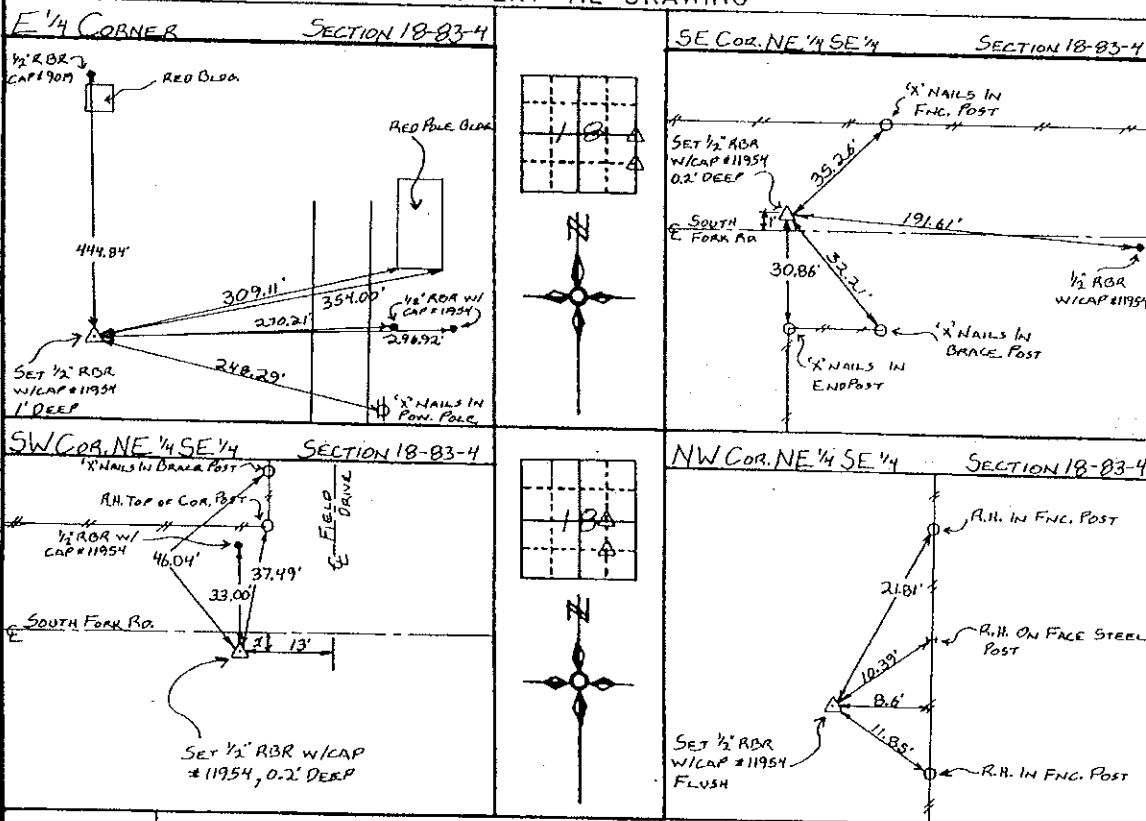 E 1/4 CORNER SECTION 18-83-4
1/2" RBR
CAP # 9019
RED BLDG.
RED POLE BLDG
444.84'
309.11'
354.00'
1/2" RBR W/
CAP #11954
270.21'
296.92'
248.29'
SET 1/2" RBR
W/CAP #11954
1' DEEP
'X' NAILS IN
POW. POLE
18
N
SE COR. NE 1/4 SE 1/4 SECTION 18-83-4
'X' NAILS IN
FNC. POST
SET 1/2" RBR
W/CAP #11954
0.2' DEEP
35.26'
191.61'
1'
℄ SOUTH
FORK RD
30.86'
32.21'
1/2" RBR
W/CAP #11954
'X' NAILS IN
BRACE POST
'X' NAILS IN
ENDPOST
SW COR. NE 1/4 SE 1/4 SECTION 18-83-4
'X' NAILS IN BRACE POST
R.H. TOP OF COR. POST
℄ FIELD DRIVE
1/2" RBR W/
CAP #11954
46.04'
37.49'
33.00'
℄ SOUTH FORK RD.
13'
SET 1/2" RBR W/CAP
#11954, 0.2' DEEP
18
N
NW COR. NE 1/4 SE 1/4 SECTION 18-83-4
R.H. IN FNC. POST
21.81'
R.H. ON FACE STEEL
POST
10.39'
8.6'
11.85'
SET 1/2" RBR
W/CAP #11954
FLUSH
R.H. IN FNC. POST